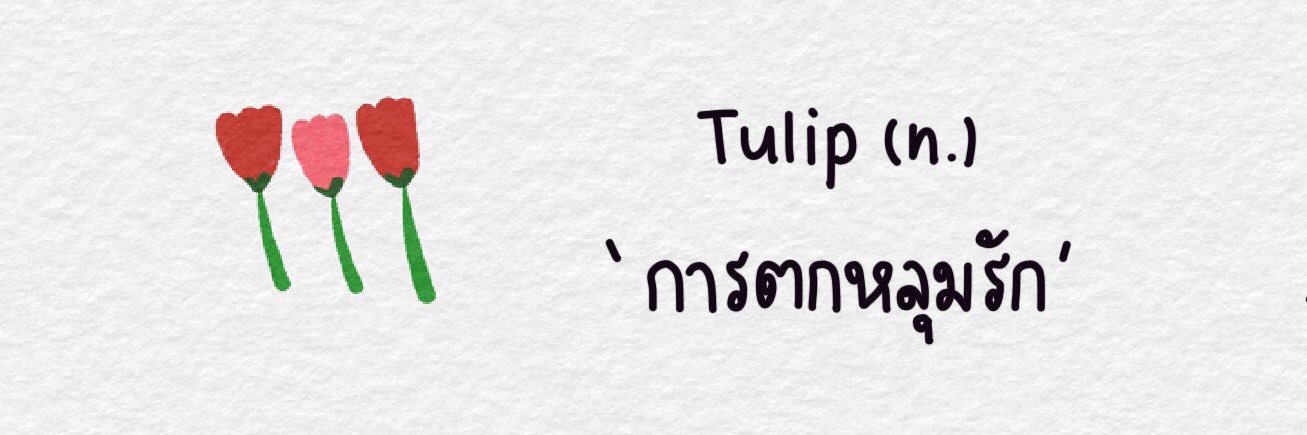 Tulip (n.)
`การตกหลุมรัก'